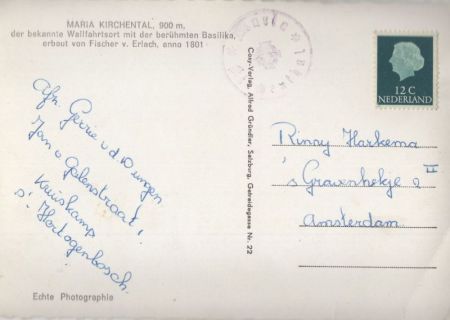 MARIA KIRCHENTAL, 900 m,
der bekannte Wallfahrtsort mit der berühmten Basilika,
erbaut von Fischer v. Erlach, anno 1801
12 C
NEDERLAND
Cosy-Verlag, Alfred Gründler, Salzburg, Getreidegasse Nr. 22
Afz. Gerrie v d Wungen
Jan v Galenstraat 1
Kruiskamp
s' Hertogenbosch.
Rinny Harkema
's Gravenhekje 2 II
Amsterdam
Echte Photographie